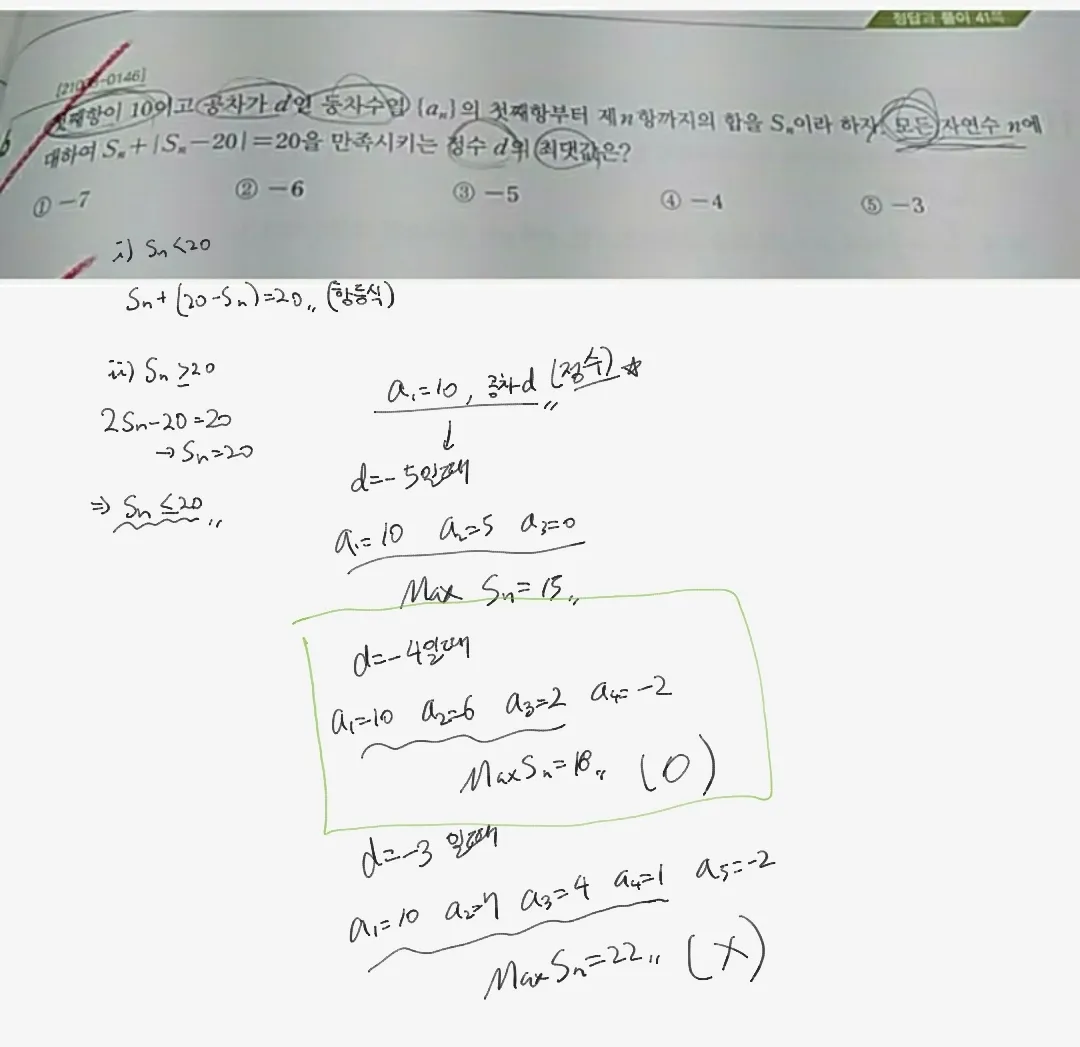 정답과 풀이 41쪽
첫째항이 10이고 공차가 d인 등차수열 {aₙ}의 첫째항부터 제n항까지의 합을 Sₙ이라 하자. 모든 자연수 n에
대하여 Sₙ+|Sₙ-20|=20을 만족시키는 정수 d의 최댓값은?
① -7 ② -6 ③ -5 ④ -4 ⑤ -3
i) Sₙ<20
Sₙ+(20-Sₙ)=20,, (항등식)
ii) Sₙ≥20
2Sₙ-20=20
→Sₙ=20
⇒ Sₙ≤20,,
a₁=10, 공차d (정수)☆
↓
d=-5일때
a₁=10 a₂=5 a₃=0
Max Sₙ=15,,
d=-4일때
a₁=10 a₂=6 a₃=2 a₄=-2
Max Sₙ=18,, (O)
d=-3일때
a₁=10 a₂=7 a₃=4 a₄=1 a₅=-2
Max Sₙ=22,, (X)